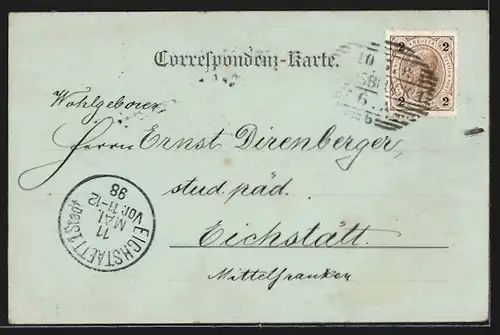 Correspondenz-Karte.
2 KREUZER 2
2 2
10
6
6
Wohlgeboren
Herrn Ernst Direnberger,
stud. päd.
Eichstätt.
Mittelfranken
EICHSTAETT 1 Stadt
11
MAI.
VOR. 11-12
98